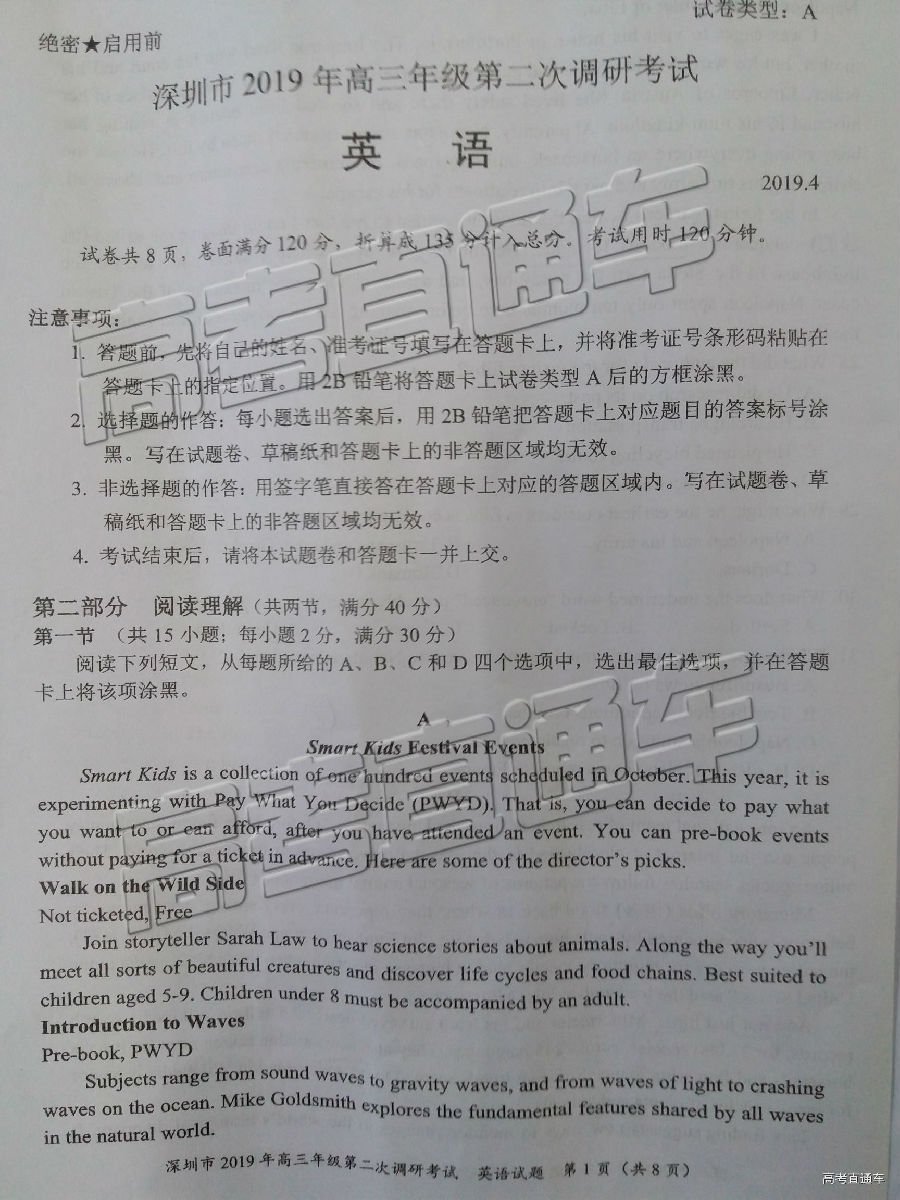 试卷类型：A
绝密★启用前
深圳市 2019 年高三年级第二次调研考试
英 语
2019.4
试卷共 8 页，卷面满分 120 分，折算成 135 分计入总分。考试用时 120 分钟。
注意事项：
1. 答题前，先将自己的姓名、准考证号填写在答题卡上，并将准考证号条形码粘贴在
答题卡上的指定位置。用 2B 铅笔将答题卡上试卷类型 A 后的方框涂黑。
2. 选择题的作答：每小题选出答案后，用 2B 铅笔把答题卡上对应题目的答案标号涂
黑。写在试题卷、草稿纸和答题卡上的非答题区域均无效。
3. 非选择题的作答：用签字笔直接答在答题卡上对应的答题区域内。写在试题卷、草
稿纸和答题卡上的非答题区域均无效。
4. 考试结束后，请将本试题卷和答题卡一并上交。
第二部分 阅读理解（共两节，满分 40 分）
第一节 （共 15 小题；每小题 2 分，满分 30 分）
阅读下列短文，从每题所给的 A、B、C 和 D 四个选项中，选出最佳选项，并在答题
卡上将该项涂黑。
A
Smart Kids Festival Events
Smart Kids is a collection of one hundred events scheduled in October. This year, it is
experimenting with Pay What You Decide (PWYD). That is, you can decide to pay what
you want to or can afford, after you have attended an event. You can pre-book events
without paying for a ticket in advance. Here are some of the director's picks.
Walk on the Wild Side
Not ticketed, Free
Join storyteller Sarah Law to hear science stories about animals. Along the way you'll
meet all sorts of beautiful creatures and discover life cycles and food chains. Best suited to
children aged 5-9. Children under 8 must be accompanied by an adult.
Introduction to Waves
Pre-book, PWYD
Subjects range from sound waves to gravity waves, and from waves of light to crashing
waves on the ocean. Mike Goldsmith explores the fundamental features shared by all waves
in the natural world.
深圳市 2019 年高三年级第二次调研考试 英语试题 第 1 页（共 8 页）
高考直通车
高考直通车
高考直通车